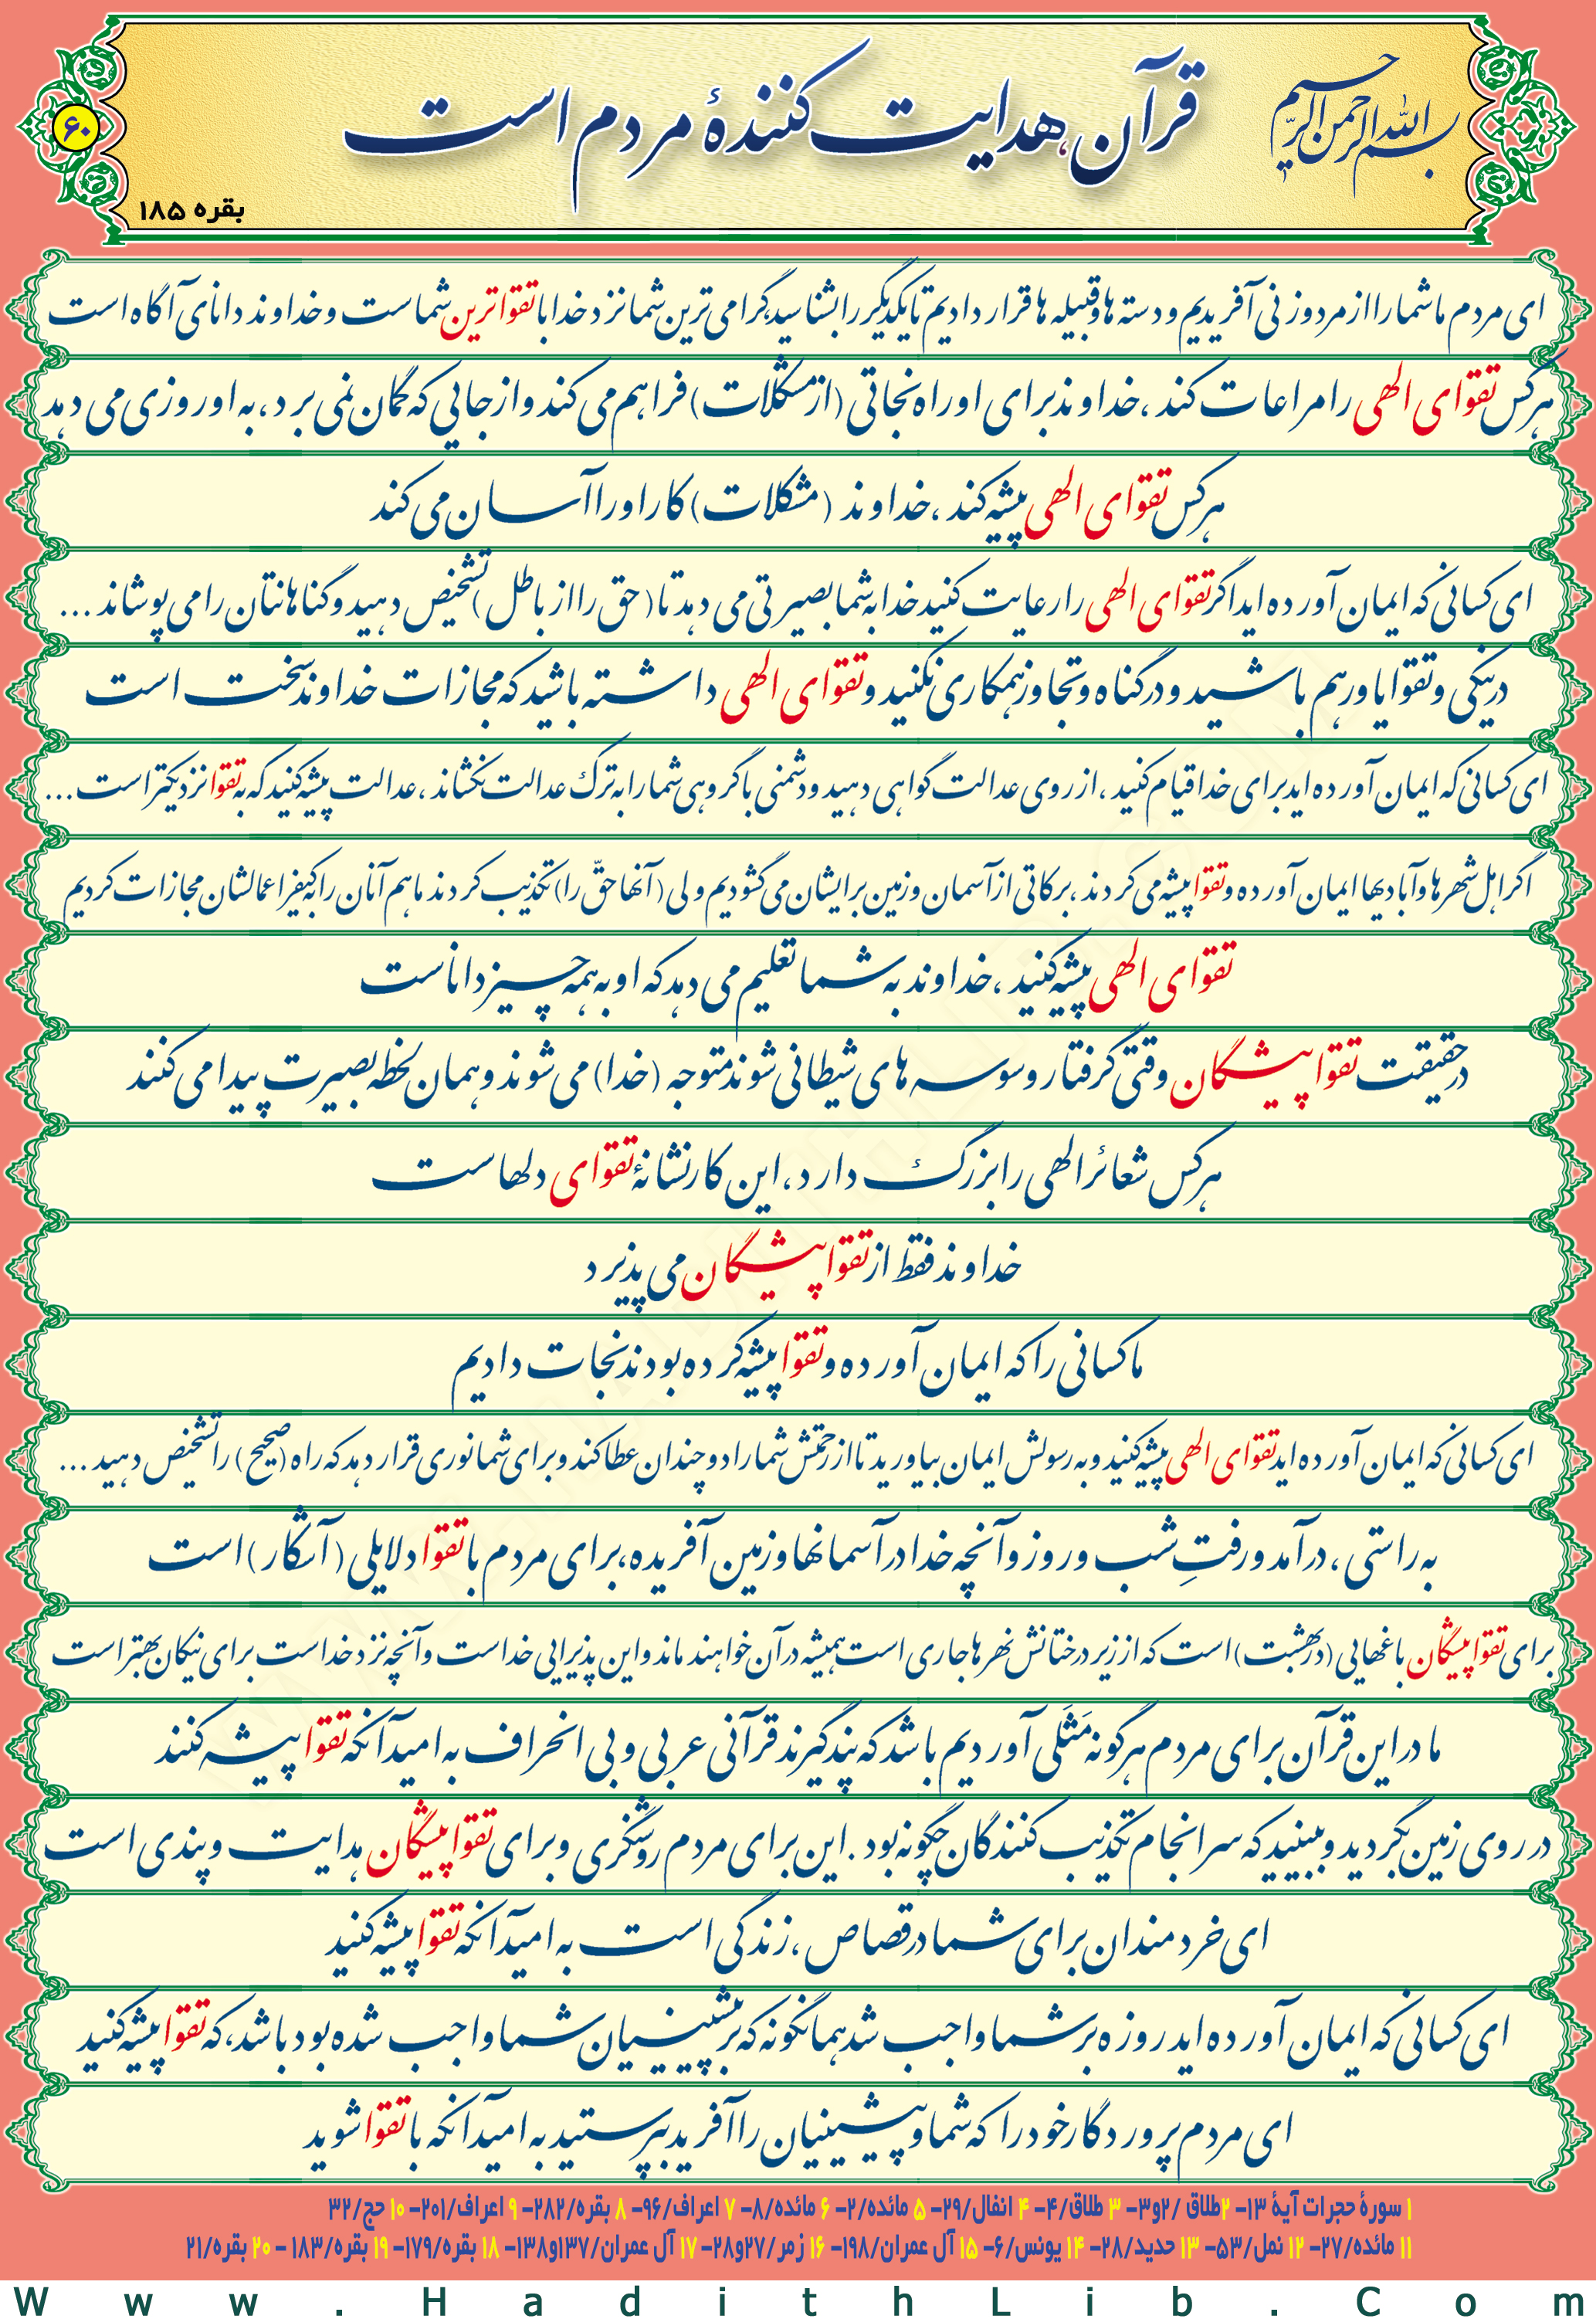 بسم الله الرحمن الرحیم
قرآن، هدایت کنندهٔ مردم است
۶۰
بقره ۱۸۵
ای مردم ما شما را از مرد و زنی آفریدیم و دسته ها و قبیله ها قرار دادیم تا یکدیگر را بشناسید گرامی ترین شما نزد خدا با تقواترین شماست و خداوند دانای آگاه است
هر کس تقوای الهی را مراعات کند، خداوند برای او راه نجاتی (از مشکلات) فراهم می کند و از جایی که گمان نمی برد، به او روزی می دهد
هر کس تقوای الهی پیشه کند، خداوند (مشکلات) کار او را آسان می کند
ای کسانی که ایمان آورده اید اگر تقوای الهی را رعایت کنید خدا به شما بصیرتی می دهد تا (حق را از باطل) تشخیص دهید و گناهانتان را می پوشاند ...
در نیکی و تقوا یاور هم باشید و در گناه و تجاوز همکاری نکنید و تقوای الهی داشته باشید که مجازات خداوند سخت است
ای کسانی که ایمان آورده اید برای خدا قیام کنید، از روی عدالت گواهی دهید و دشمنی با گروهی شما را به ترک عدالت نکشاند، عدالت پیشه کنید که به تقوا نزدیکتر است ...
اگر اهل شهرها و آبادیها ایمان آورده و تقوا پیشه می کردند، برکاتی از آسمان و زمین برایشان می گشودیم ولی (آنها حقّ را) تکذیب کردند ما هم آنان را به کیفر اعمالشان مجازات کردیم
تقوای الهی پیشه کنید، خداوند به شما تعلیم می دهد که او به همه چیز داناست
در حقیقت تقوا پیشگان وقتی گرفتار وسوسه های شیطانی شوند متوجه (خدا) می شوند و همان لحظه بصیرت پیدا می کنند
هر کس شعائر الهی را بزرگ دارد، این کار نشانهٔ تقوای دلهاست
خداوند فقط از تقوا پیشگان می پذیرد
ما کسانی را که ایمان آورده و تقوا پیشه کرده بودند نجات دادیم
ای کسانی که ایمان آورده اید تقوای الهی پیشه کنید و به رسولش ایمان بیاورید تا از رحمتش شما را دو چندان عطا کند و برای شما نوری قرار دهد که راه (صحیح) را تشخیص دهید ...
به راستی، در آمد و رفتِ شب و روز و آنچه خدا در آسمانها و زمین آفریده، برای مردم با تقوا دلایلی (آشکار) است
برای تقوا پیشگان باغهایی (در بهشت) است که از زیر درختانش نهرها جاری است همیشه در آن خواهند ماند و این پذیرایی خداست و آنچه نزد خداست برای نیکان بهتر است
ما در این قرآن برای مردم هر گونه مَثَلی آوردیم باشد که پند گیرند قرآنی عربی و بی انحراف به امید آنکه تقوا پیشه کنند
در روی زمین بگردید و ببینید که سرانجام تکذیب کنندگان چگونه بود. این برای مردم روشنگری و برای تقوا پیشگان هدایت و پندی است
ای خردمندان برای شما در قصاص، زندگی است به امید آنکه تقوا پیشه کنید
ای کسانی که ایمان آورده اید روزه بر شما واجب شد همانگونه که بر پیشینیان شما واجب شده بود باشد، که تقوا پیشه کنید
ای مردم پروردگار خود را که شما و پیشینیان را آفرید بپرستید به امید آنکه با تقوا شوید
۱ سورهٔ حجرات آیهٔ ۱۳- ۲طلاق /۲و۳- ۳ طلاق/۴- ۴ انفال/۲۹- ۵ مائده/۲- ۶ مائده/۸- ۷ اعراف/۹۶- ۸ بقره/۲۸۲- ۹ اعراف/۲۰۱- ۱۰ حج/۳۲
۱۱ مائده/۲۷- ۱۲ نمل/۵۳- ۱۳ حدید/۲۸- ۱۴ یونس/۶- ۱۵ آل عمران/۱۹۸- ۱۶ زمر/۲۷و۲۸- ۱۷ آل عمران/۱۳۷و۱۳۸- ۱۸ بقره/۱۷۹- ۱۹ بقره/۱۸۳ - ۲۰ بقره/۲۱
Www.HadithLib.Com